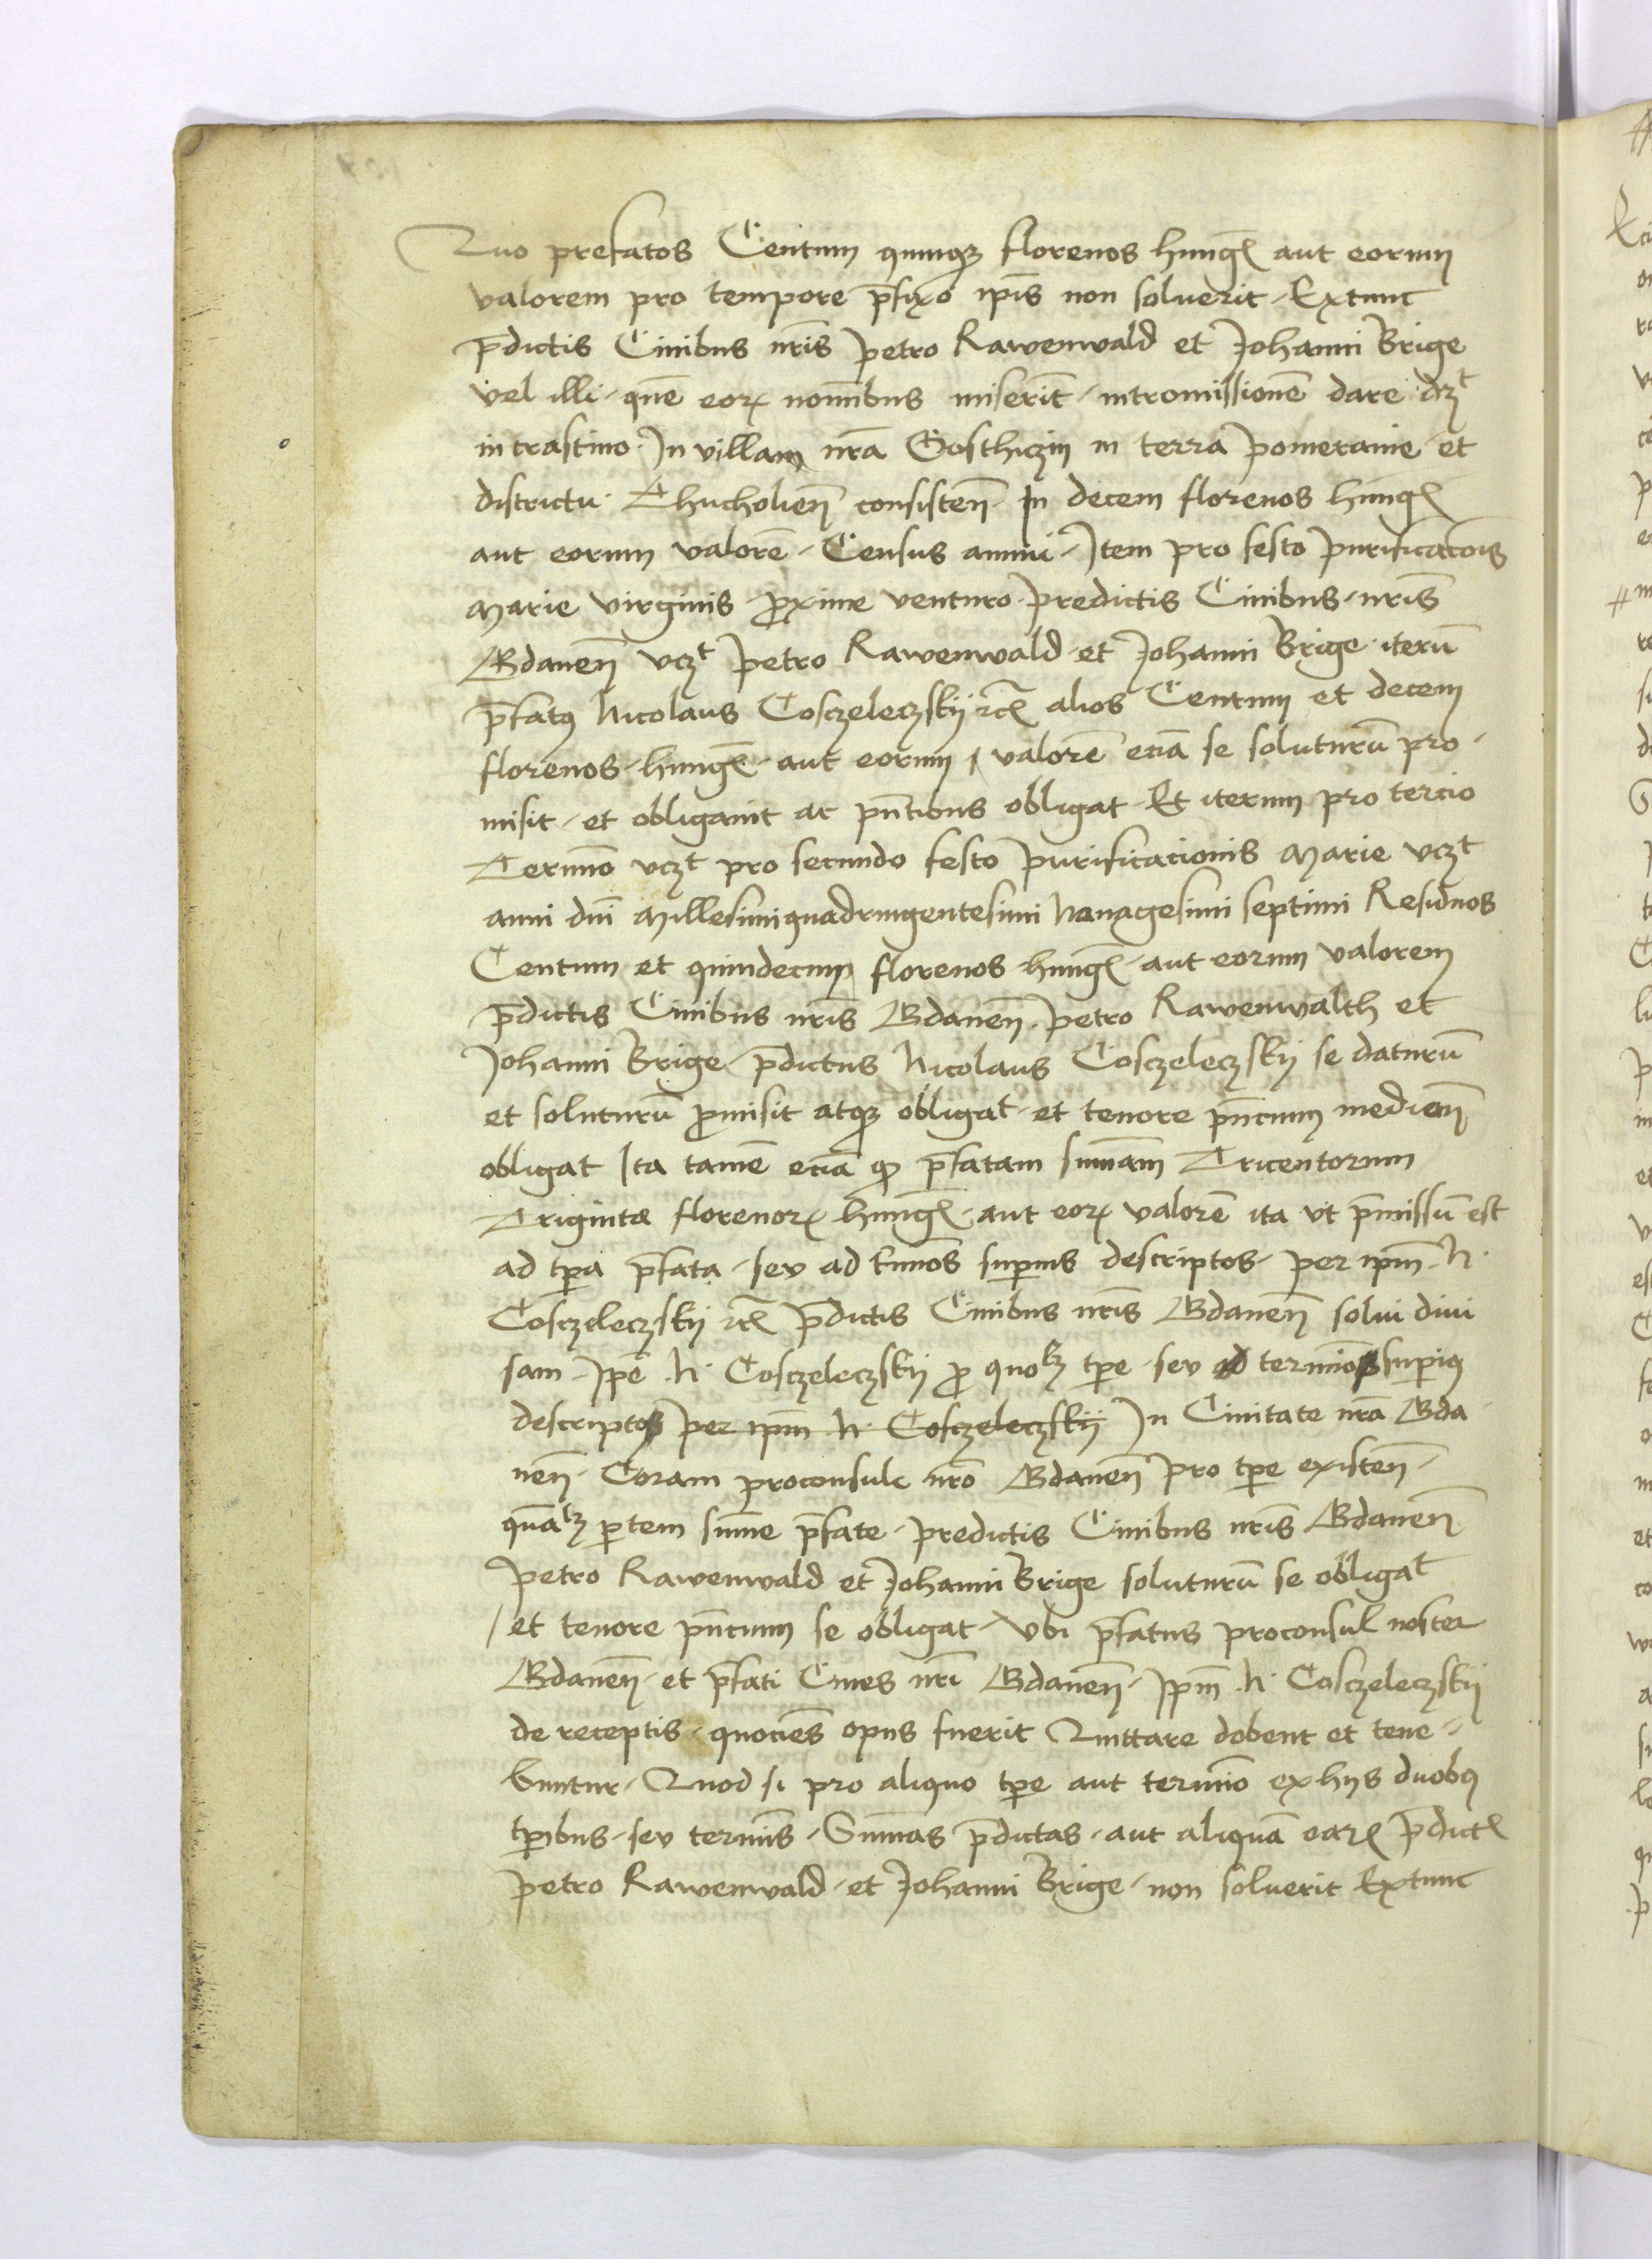 Quo prefatos Centum quinqꝫ florenos hungꝭ aut eorum
valorem pro tempore p̄fixo ip̄is non soluerit Extunc
p̄dictis Ciuibus nr̄is Petro Rawenwald et Johanni Brige
vel illi quē eorꝝ nominibus miserīt intromissionē dare dꝫt
in crastino In villam nrā Gosthiczin in terra Pomeranie et
districtu Thucholien̄ consisten̄ In decem florenos hungꝭ
aut eorum valorē Census annui Item pro festo Purificac̄ois
Marie virginis ꝓxime venturo predictis Ciuibus nr̄is
Gdanen̄ vcꝫt Petro Rawenwald et Johanni Brige iterū
p̄fatꝰ Nicolaus Cosczeleczskij ꝛcꝭ alios Centum et decem
florenos hungꝭ aut eorum valorē eciā se soluturū pro
misit et obligauit ac pn̄tibus obligat Et iterum pro tercio
Termīo vcꝫt pro secundo festo Purificacionis Marie vcꝫt
anni dn̄i Millesimiquadringentesimi Nonagesimi septimi Residuos
Centum et quindecim florenos hungꝭ aut eorum valorem
p̄dictis Ciuibus nr̄is Gdanen̄ Petro Rawenwalth et
Johanni Brige p̄dictus Nicolaus Cosczeleczskij se daturū
et soluturū ꝓmisit atqꝫ obligat et tenore pn̄cium medien̄
obligat Ita tamē eciā ꝙ p̄fatam sum̄am Tricentorum
Triginta florenorꝝ hungꝭ aut eorꝝ valorē ita vt p̄missū est
ad tꝑa p̄fata seu ad t̄minos suꝑius descriptos per ip̄m N
Cosczeleczskij ꝛcꝭ p̄dictis Ciuibus nr̄is Gdanen̄ solui diui
sam Ip̄e N Cosczeleczskij ꝓ quolꝫ tꝑe seu termīo suꝑiꝰ
descripto per ip̄m N Cosczeleczskij In Ciuitate nrā Gda
nen̄ Coram proconsule nr̄o Gdanen̄ pro tꝑe existen̄
quālꝫ ꝑtem sum̄e p̄fate predictis Ciuibus nr̄is Gdanen̄
Petro Rawenwald et Johanni Brige soluturū se obligat
et tenore pn̄cium se obligat Vbi p̄fatus proconsul noster
Gdanen̄ et p̄fati Ciues nr̄i Gdanen̄ Ip̄m N Cosczeleczskij
de receptis quociēs opus fuerit Quittare debent et tene
buntur Quod si pro aliquo tꝑe aut termīo ex hijs duobꝰ
tꝑibus seu terminis Sum̄as p̄dictas aut aliquā earꝝ p̄dictꝭ
Petro Rawenwald et Johanni Brige non soluerit Extunc